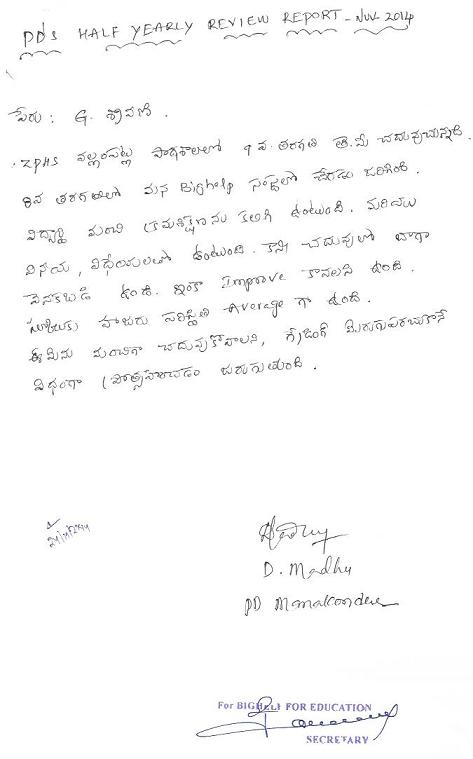 PD's HALF YEARLY REVIEW REPORT - NOV 2014
పేరు : G. శ్రావణి .
ZPHS వల్లంపట్ల పాఠశాలలో 9 వ తరగతి తె.మీ చదువుచున్నది.
8వ తరగతిలో మన Bighelp సంస్థలో చేరడం జరిగింది.
విద్యార్థి మంచి క్రమశిక్షణను కలిగి ఉంటుంది. మరియు
వినయ, విధేయలలో ఉంటుంది. కానీ చదువులో బాగా
వెనకబడి ఉంది. ఇంకా Improve కావలసి ఉంది.
హాజరు పరిస్థితి Average గా ఉంది.
ఈమెను మంచిగా చదువుకోవాలని, గ్రేడింగ్ మెరుగుపరచుకొనే
విధంగా ప్రోత్సహించడం జరుగుతుంది.
D. Madhu
PD Manakondur
For BIGHELP FOR EDUCATION
SECRETARY